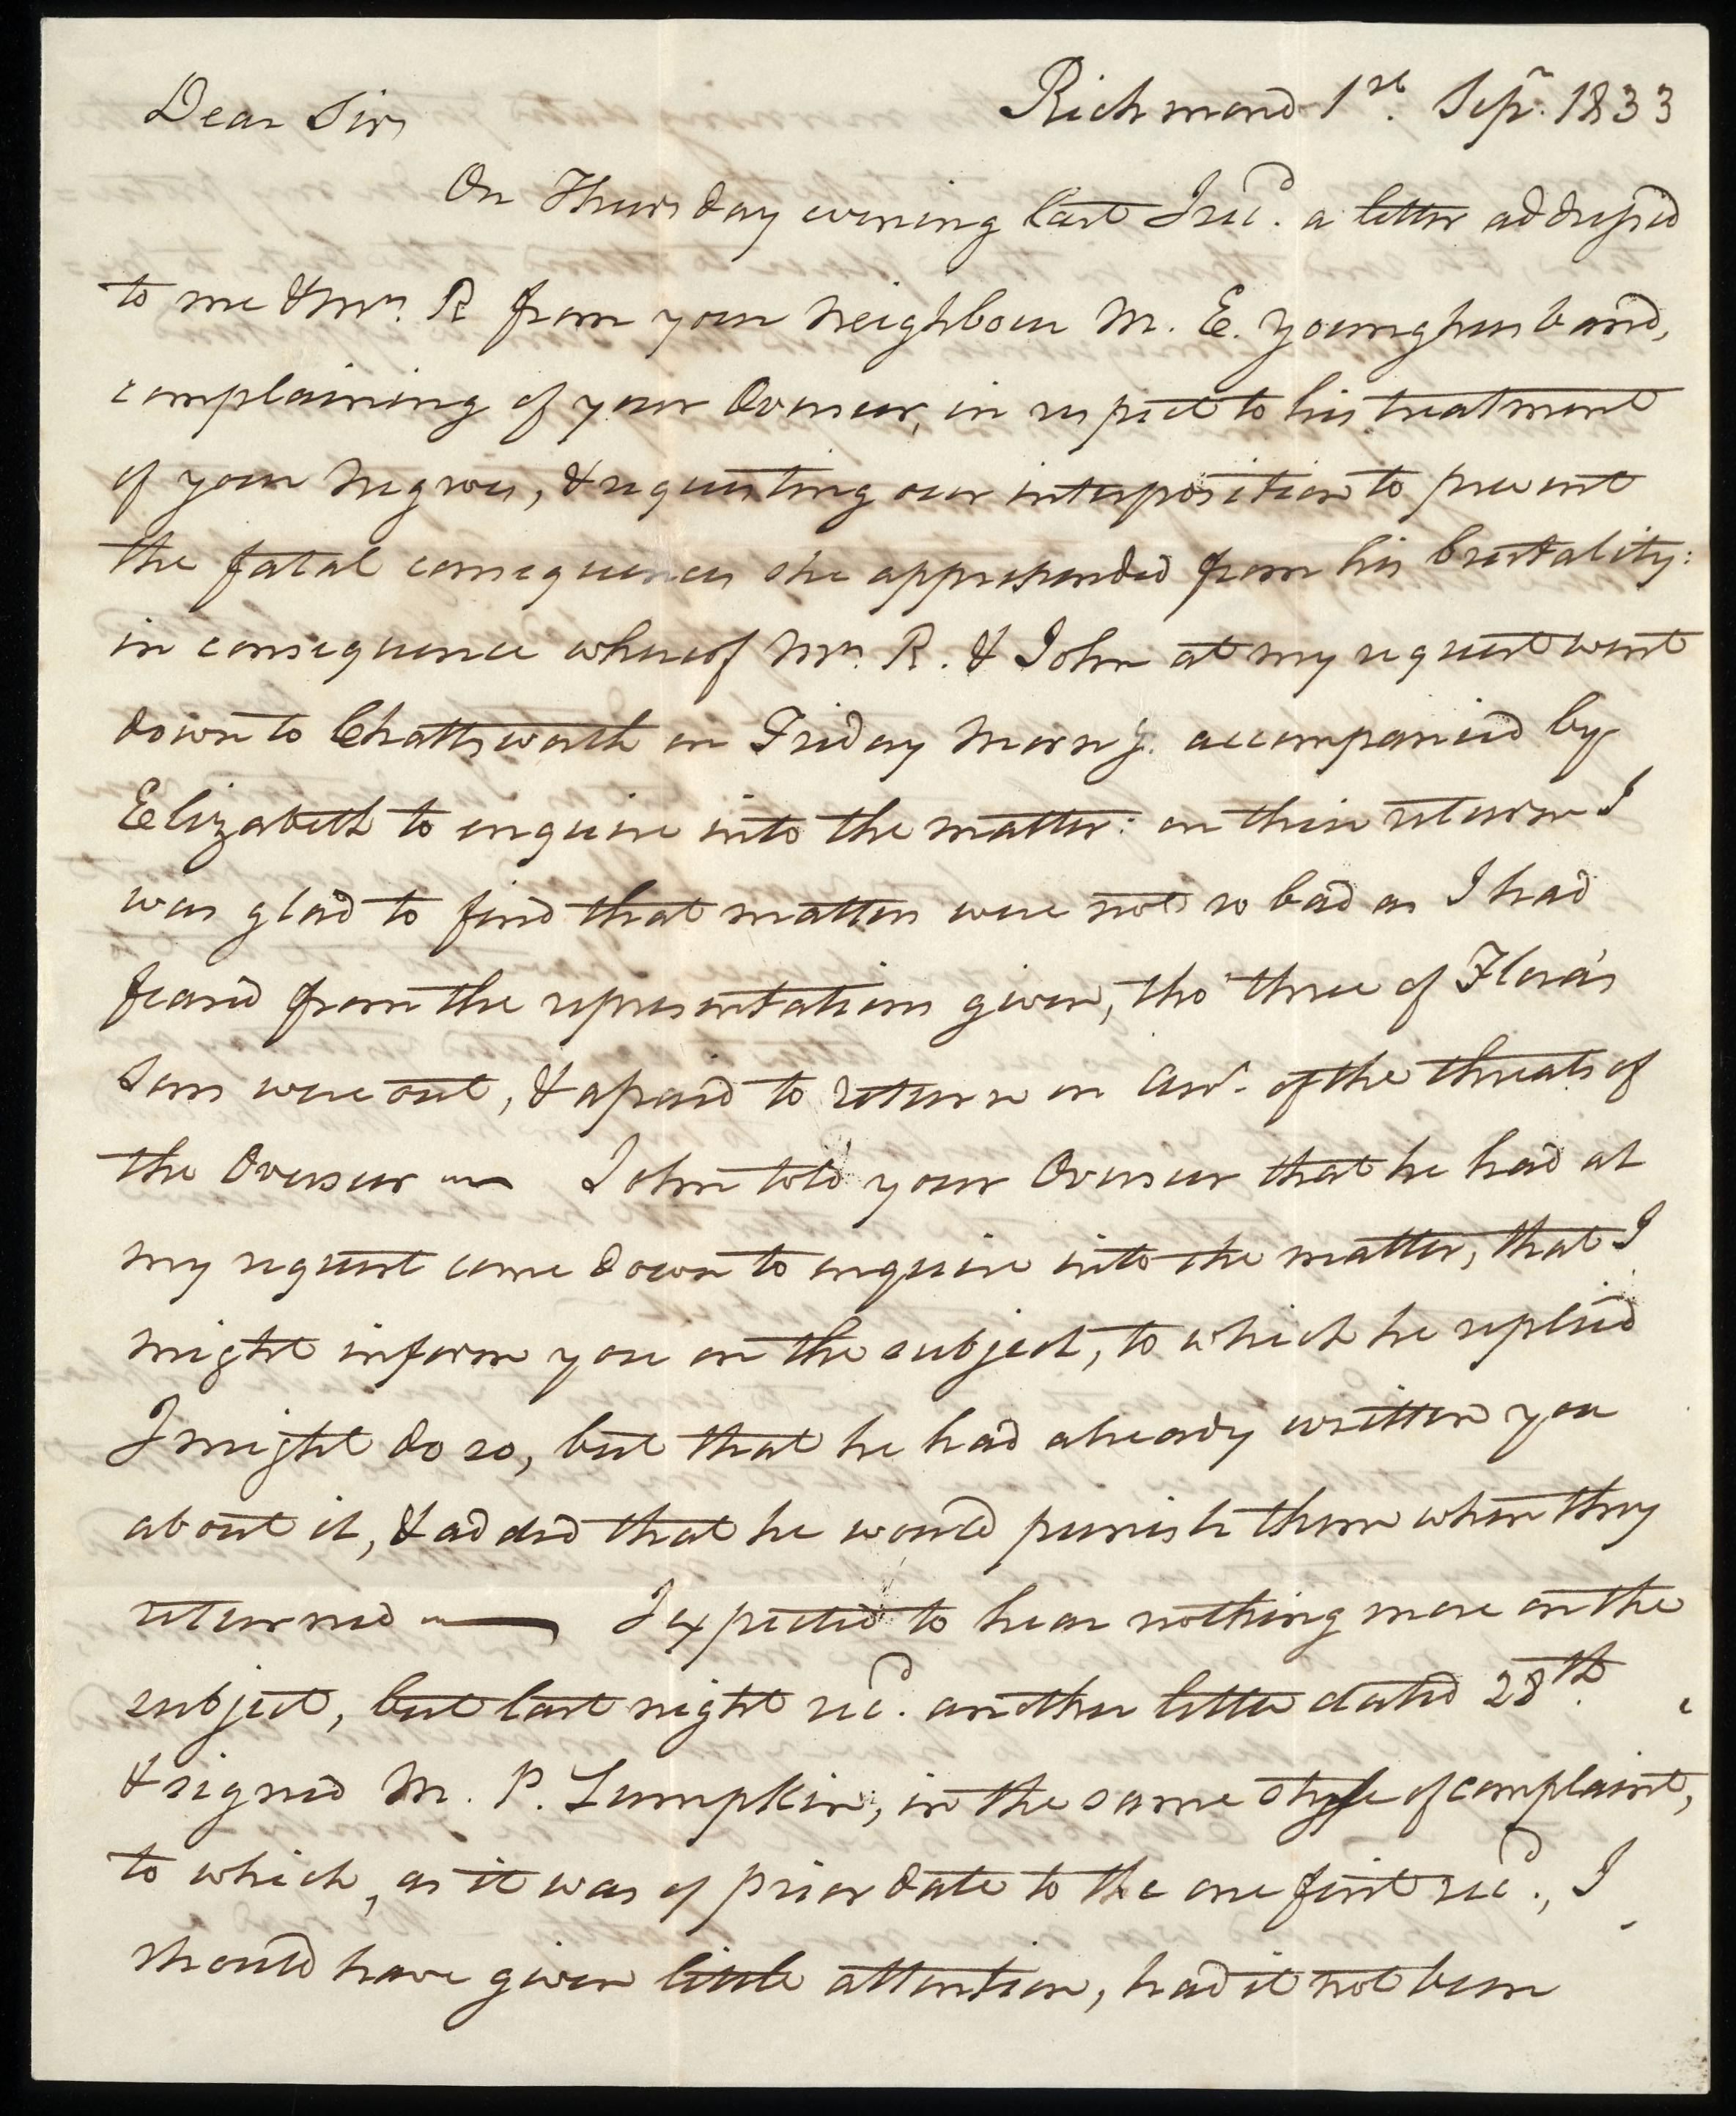 Richmond 1st. Sepr. 1833
Dear Sir,
On Thursday evening last I recd. a letter addressed
to me & Mrs. R from your neighbour M. E. Younghusband,
complaining of your Overseer, in respect to his treatment
of your Negroes, & requesting our interposition to prevent
the fatal consequences she apprehended from his brutality:
in consequence whereof Mrs. R. & John at my request went
down to Chattsworth on Friday Morng. accompanied by
Elizabeth to enquire into the matter: on their return I
was glad to find that matters were not so bad as I had
feared from the representations given, tho' three of Flora's
sons were out, & afraid to return on acct. of the threats of
the Overseer — John told your Overseer that he had at
my request come down to enquire into the matter, that I
might inform you on the subject, to which he replied
I might do so, but that he had already written you
about it, & added that he would punish them when they
returned — I expected to hear nothing more on the
subject, but last night recd. another letter dated 28th.
& signed M. P. Lumpkin, in the same style of complaint,
to which, as it was of prior date to the one first recd., I
should have given little attention, had it not been